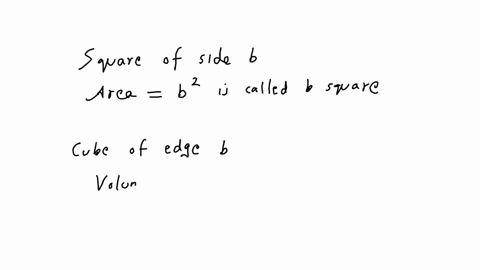 Square of side b
Area = b² is called b square
Cube of edge b
Volum